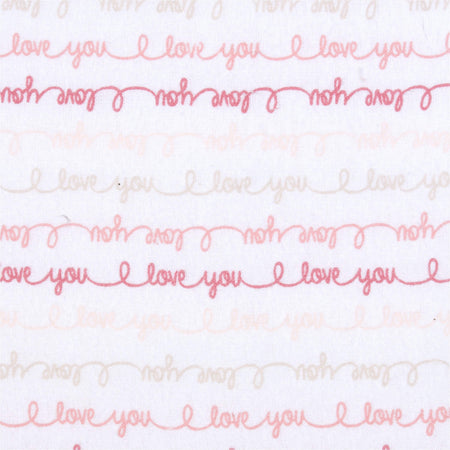 I love you I love you I love you
love you I love you I love you I
I love you I love you I love you
I love you I love you I love you
I love you I love you I love you
I love you I love you I love you
love you I love you I love you I
I love you I love you I love you
I love you I love you I love you
I love you I love you I love you